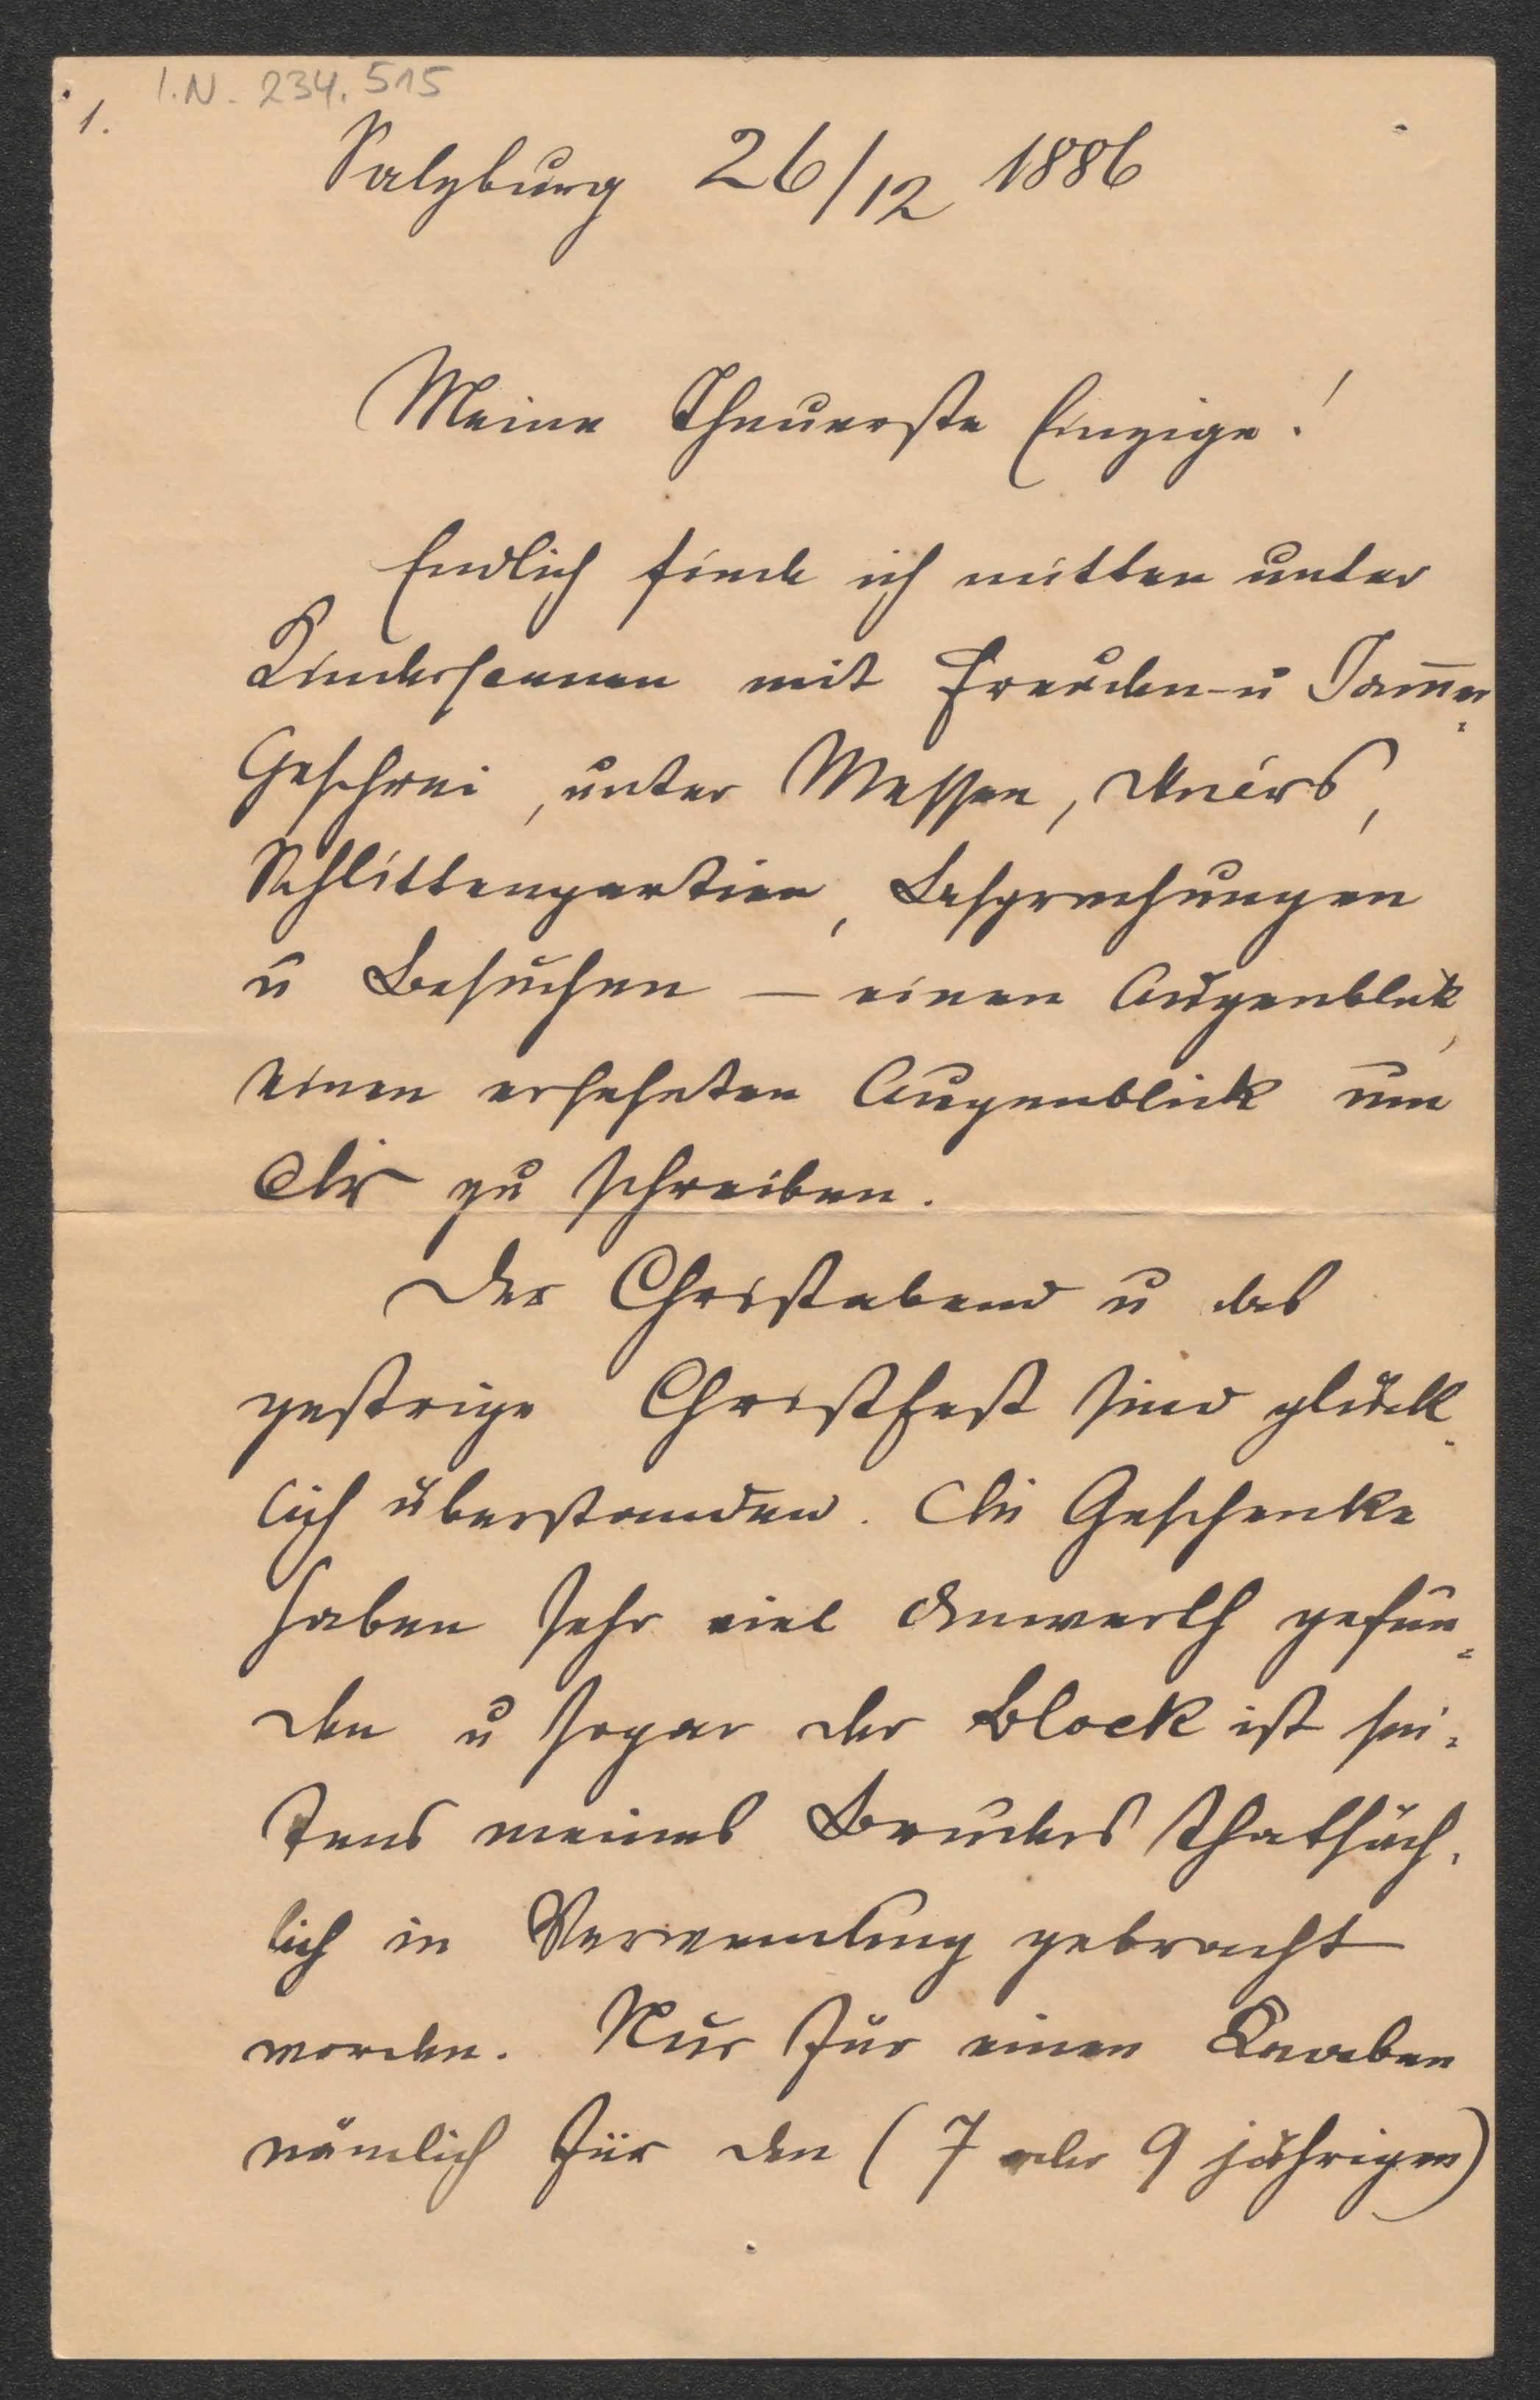 I.N. 234.515
1.
Salzburg 26/12 1886
Meine Theuerste Einzige!
Endlich finde ich mitten unter
Kinderscenen mit Freuden- u Jam̅er
Geschrei, unter Messen, Diners,
Schlittenpartien, Besprechungen
u Besuchen — einen Augenblick,
einen ersehnten Augenblick um
Dir zu schreiben.
Der Christabend u das
gestrige Christfest sind glück-
lich überstanden. Die Geschenke
haben sehr viel Anwerth gefun-
den u sogar der Block ist sei-
tens meines Bruders thatsäch-
lich in Verwendung gebracht
worden. Nur für einen Knaben
nämlich für den (7 oder 9 jährigen)